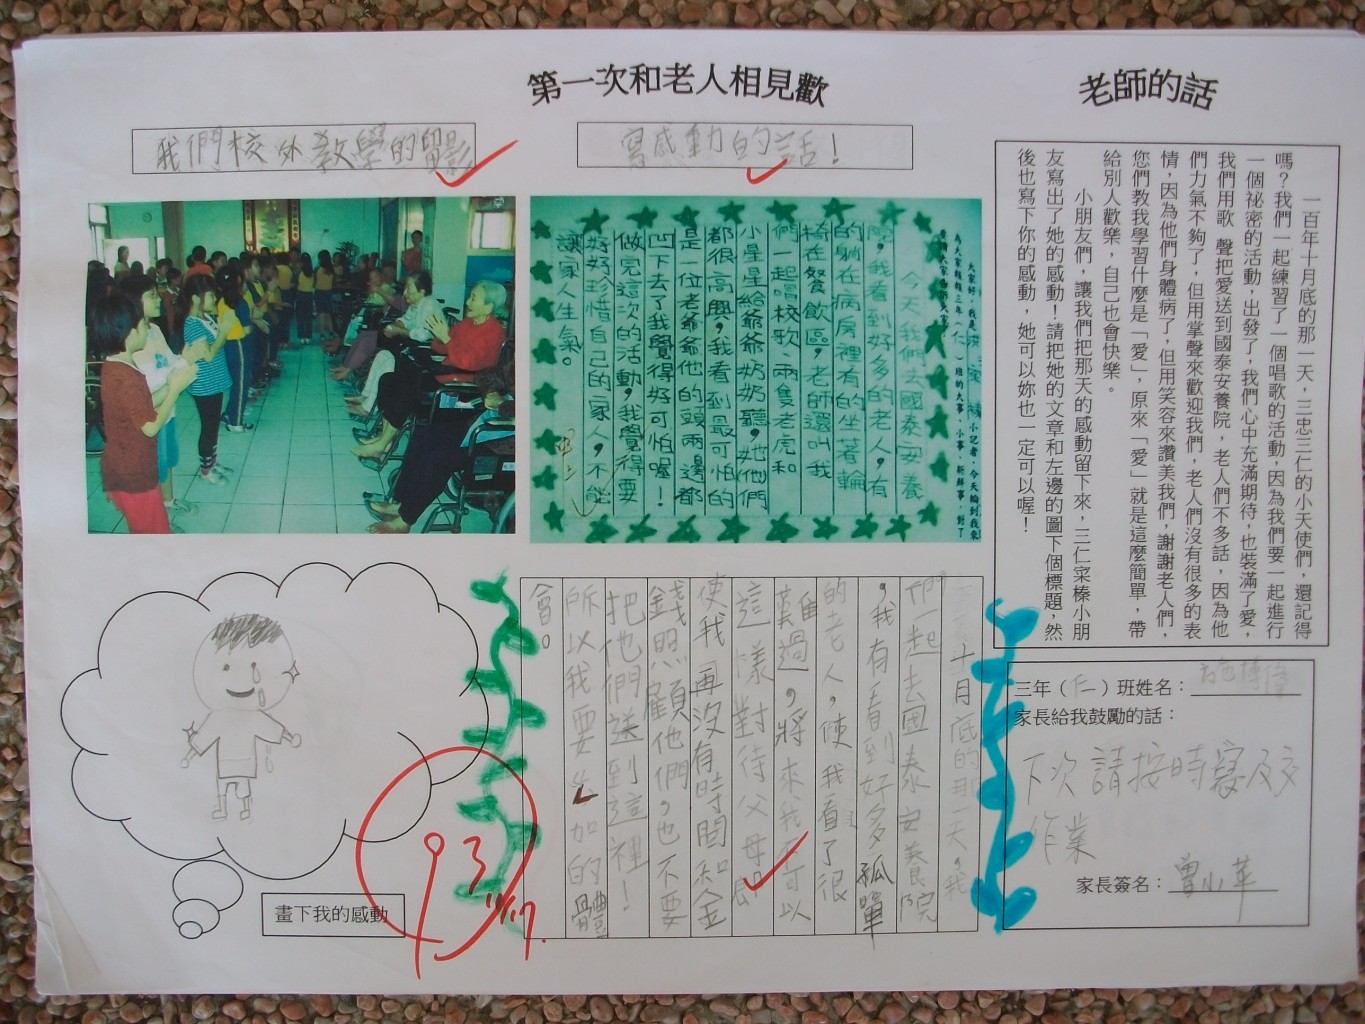 第一次和老人相見歡
老師的話
我們校外教學的留影
寫感動的話！
一百年十月底的那一天，三忠三仁的小天使們，還記得
嗎？我們一起練習了一個唱歌的活動，因為我們要一起進行
一個祕密的活動，出發了，我們心中充滿期待，也裝滿了愛，
我們用歌 聲把愛送到國泰安養院，老人們不多話，因為他
們力氣不夠了，但用掌聲來歡迎我們，老人們沒有很多的表
情，因為他們身體病了，但用笑容來讚美我們，謝謝老人們，
您們教我學習什麼是「愛」，原來「愛」就是這麼簡單，帶
給別人歡樂，自己也會快樂。
小朋友們，讓我們把那天的感動留下來，三仁寀榛小朋
友寫出了她的感動！請把她的文章和左邊的圖下個標題，然
後也寫下你的感動，她可以妳也一定可以喔！
今天我們去國泰安養
院，我看到好多的老人，有
的躺在病房裡有的坐著輪
椅在餐飲區，老師還叫我
們一起唱校歌、兩隻老虎和
小星星給爺爺奶奶聽，她他們
都很高興，我看到最可怕的
是一位老爺爺他的頭兩邊都
凹下去了我覺得好可怕喔！
做完這次的活動，我覺得要
好好珍惜自己的家人，不能
讓家人生氣。
十月底的那一天，我
們一起去國泰安養院
，我有看到好多孤單
的老人，使我看了很
難過，將來我不可以
這樣對待父母
使我再沒有時間和金
錢照顧他們，也不要
把他們送到這裡！
所以我要更加的體
會。
畫下我的感動
93
11/17
三年（仁）班姓名：
家長給我鼓勵的話：
下次請按時寫及交
作業
家長簽名：曾小華